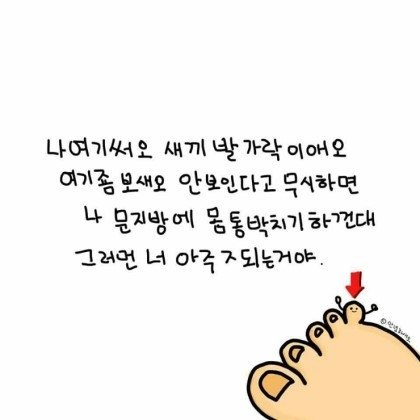 나여기써오 새끼발가락이애오
여기좀보새오 안보인다고 무시하면
나 문지방에 몸통박치기하껀대
그러먼 너 아주 ㅈ되는거야.